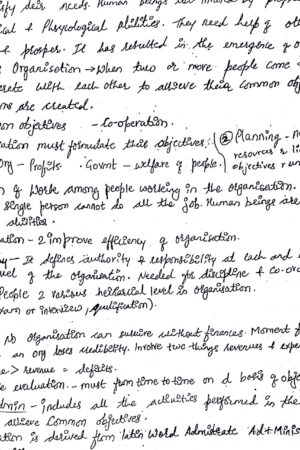 sfy their needs. Human beings are limited by
cal & Physiological abilities. They need help of othe
& prosper. It has resulted in the emergence of o
Organisation → when two or more people come
erate with each other to achieve their common obj
ons are created.
mon objectives - Co-operation.
ation must formulate their objectives.
② Planning - no
Org - Profits. Govmt - welfare of people.
resources & li
objectives &
n of work among people working in the organisation.
single person cannot do all the job. Human beings are
abilities.
ation - 2 improve efficiency of organisation.
y - It defines authority & responsibility at each and
vel of the organisation. Needed for discipline & co-or
People 2 various heirarical level in organisation.
xam or interview, qualification).
No organisation can survive without finances. Moment f
an org loses credibility. Involve two things revenues & expe
e > revenue = deficits.
ce evaluation. - must from time to time on d basis of obje
Admin - includes all the activities performed in the
achieve Common objectives.
ation is derived from latin Word Admistrate Ad + Minis